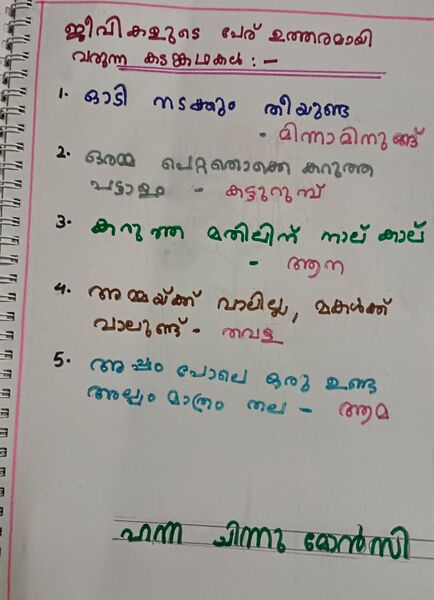 ജീവികളുടെ പേര് ഉത്തരമായി
വരുന്ന കടങ്കഥകൾ :-
1. ഓടി നടക്കും തീയുണ്ട
- മിന്നാമിനുങ്ങ്
2. ഒരമ്മ പെറ്റതൊക്കെ കറുത്ത
പട്ടാളം - കട്ടുറുമ്പ്
3. കറുത്ത മതിലിന് നാല് കാല്
- ആന
4. അമ്മയ്ക്ക് വാലില്ല, മകൾക്ക്
വാലുണ്ട് - തവള
5. അപ്പം പോലെ ഒരു ഉണ്ട
അല്പം മാത്രം തല - ആമ
ഹന്ന ചിന്നു മോൻസി